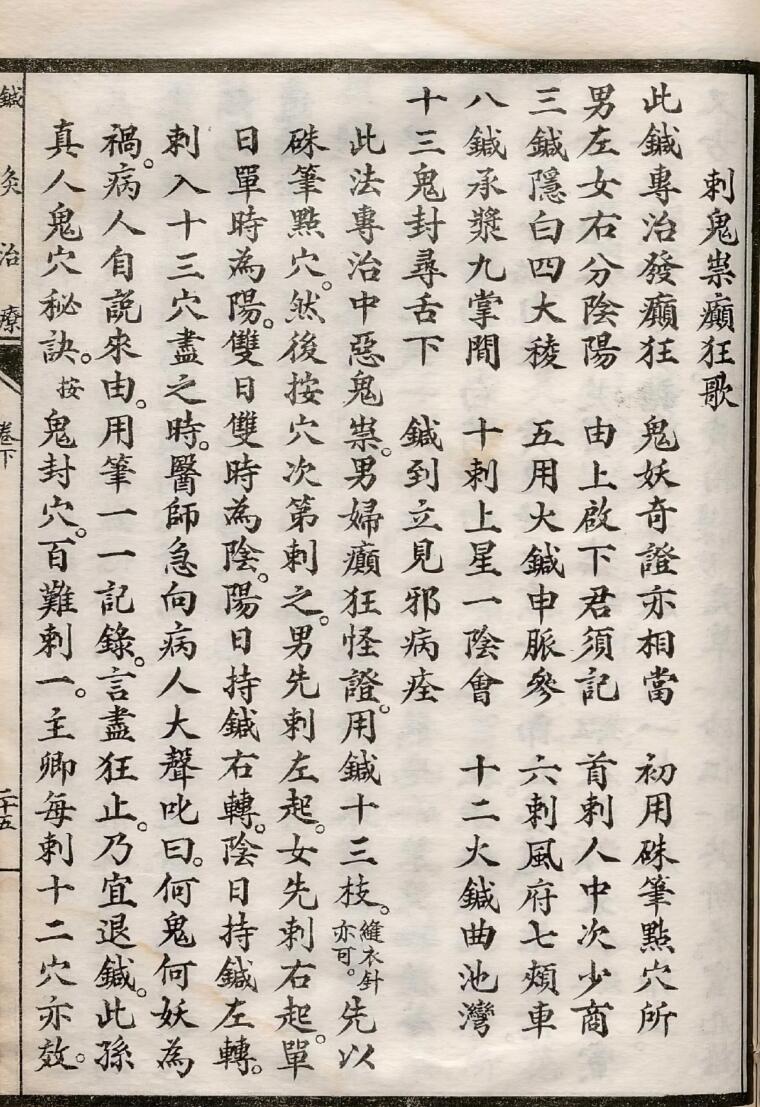 刺鬼祟癲狂歌
此鍼專治發癲狂　鬼妖奇證亦相當　初用硃筆點穴所
男左女右分陰陽　由上啟下君須記　首刺人中次少商
三鍼隱白四大稜　五用大鍼申脈參　六刺風府七頰車
八鍼承漿九掌間　十刺上星一陰會　十二火鍼曲池灣
十三鬼封尋舌下　鍼到立見邪病痊
此法專治中惡鬼祟。男婦癲狂怪證。用鍼十三枝。縫衣針亦可。先以
硃筆點穴。然後按穴次第刺之。男先刺左起。女先刺右起。單
日單時為陽。雙日雙時為陰。陽日持鍼右轉。陰日持鍼左轉。
刺入十三穴盡之時。醫師急向病人大聲叱曰。何鬼何妖為
禍。病人自説來由。用筆一一記錄。言盡狂止。乃宜退鍼。此孫
真人鬼穴秘訣。按鬼封穴。百難刺一。主卿每刺十二穴亦效。
鍼灸治療　卷下　二十五